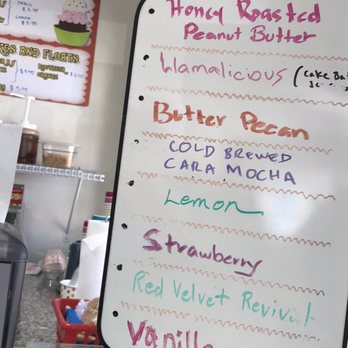 Honey Roasted
Peanut Butter
Llamalicious (Cake Ba
Butter Pecan
COLD BREWED
CARA MOCHA
Lemon
Strawberry
Red Velvet Revival
Vanilla
SMALL
AND FLOATS